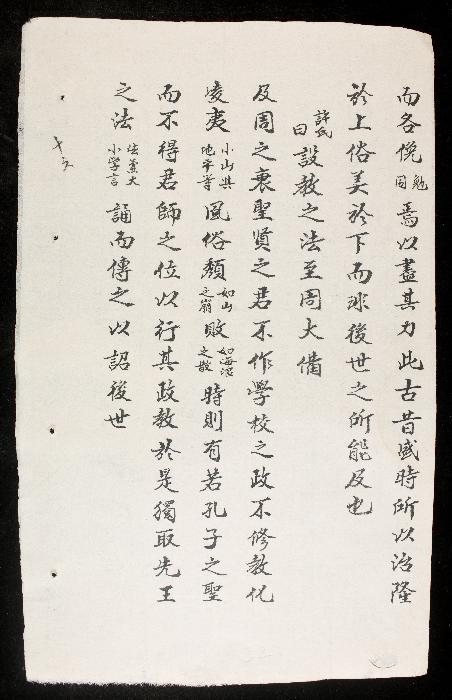 而各俛勉同焉以盡其力此古昔盛時所以治隆
於上俗美於下而非後世之所能及也
許氏曰設教之法至周大備
及周之衰聖賢之君不作學校之政不修教化
凌夷小山與地平等風俗頹如山之崩敗如海水之散時則有若孔子之聖
而不得君師之位以行其政教於是獨取先王
之法法葉大小学言誦而傳之以詔後世
十六